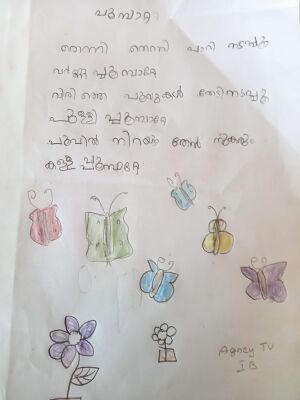 പൂമ്പാറ്റ
തെന്നി തെന്നി പാറി നടക്കും
വർണ്ണ പൂമ്പാറ്റേ
വിരിഞ്ഞ പൂവുകൾ തേടിനടക്കും
പുള്ളി പൂമ്പാറ്റേ
പൂവിൽ നിറയും തേൻ നുകരും
കള്ള പൂമ്പാറ്റേ
Agney TV
I B